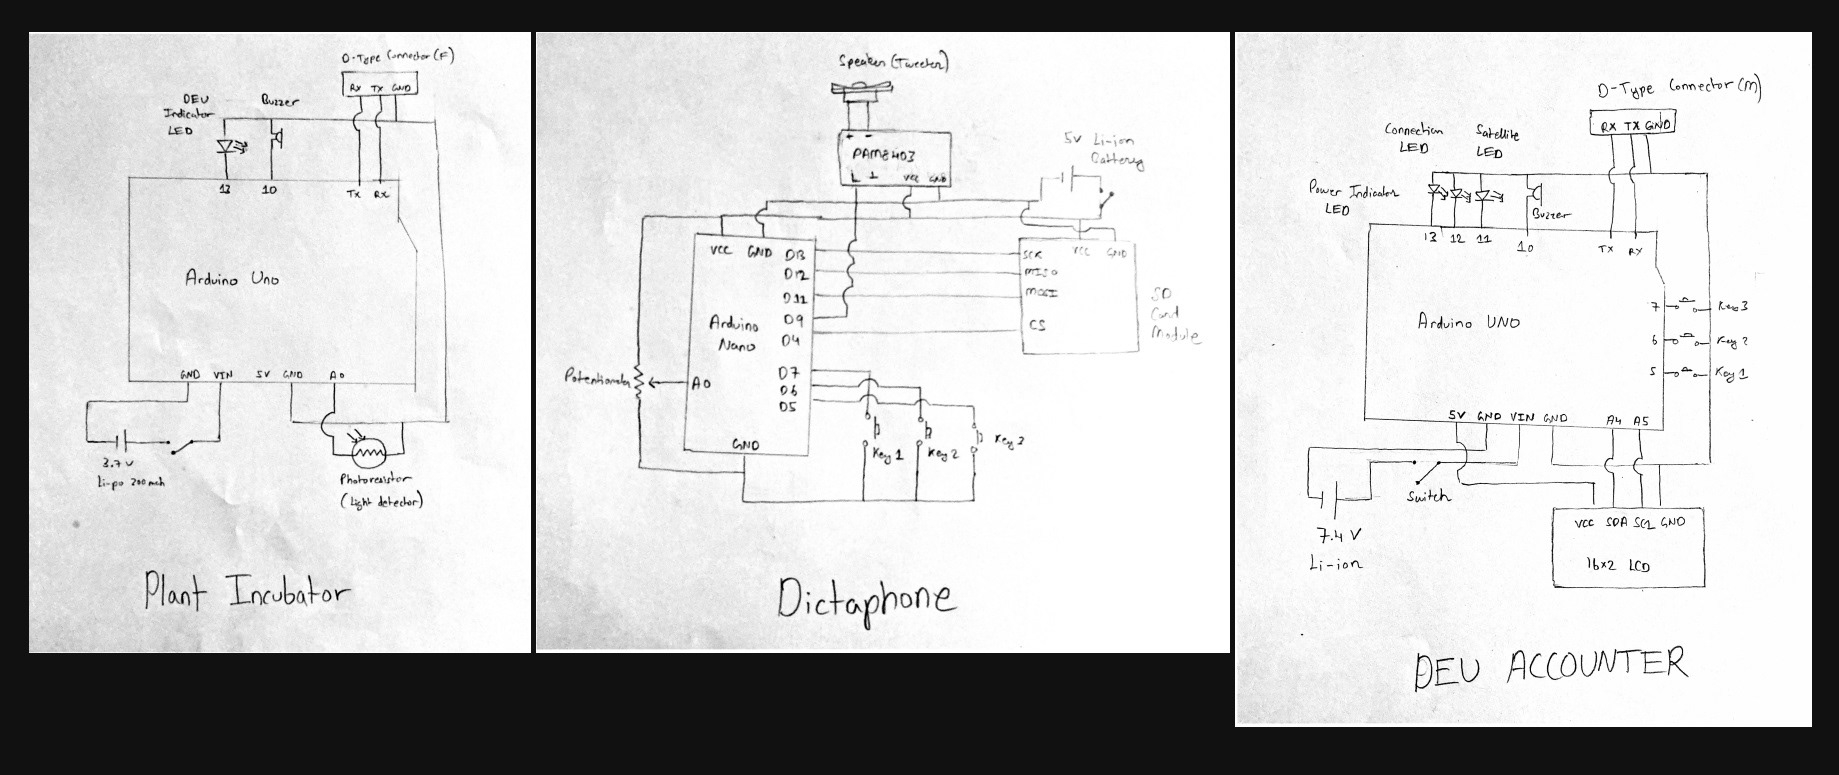 D-Type Connector (F)
RX TX GND
DEU
Indicator
LED
Buzzer
12
10
Tx
Rx
Arduino Uno
GND VIN 5V GND A0
3.7 V
Li-po 200 mah
Photoresistor
(Light detector)
Plant Incubator
Speaker (Tweeter)
+ -
PAM8403
L ⊥ VCC GND
5V Li-ion
Battery
VCC GND
D13
D12
D11
D9
D4
D7
D6
D5
Arduino
Nano
A0
GND
Potentiometer
SCK
MISO
MOSI
CS
VCC GND
SD
Card
Module
Key 1
Key 2
Key 3
Dictaphone
D-Type Connector (M)
RX TX GND
Connection
LED
Satellite
LED
Power Indicator
LED
Buzzer
13 12 11
10
TX
RX
Arduino UNO
7
Key 3
6
Key 2
5
Key 1
5V GND VIN GND A4 A5
Switch
7.4 V
Li-ion
VCC SDA SCL GND
16x2 LCD
DEU ACCOUNTER